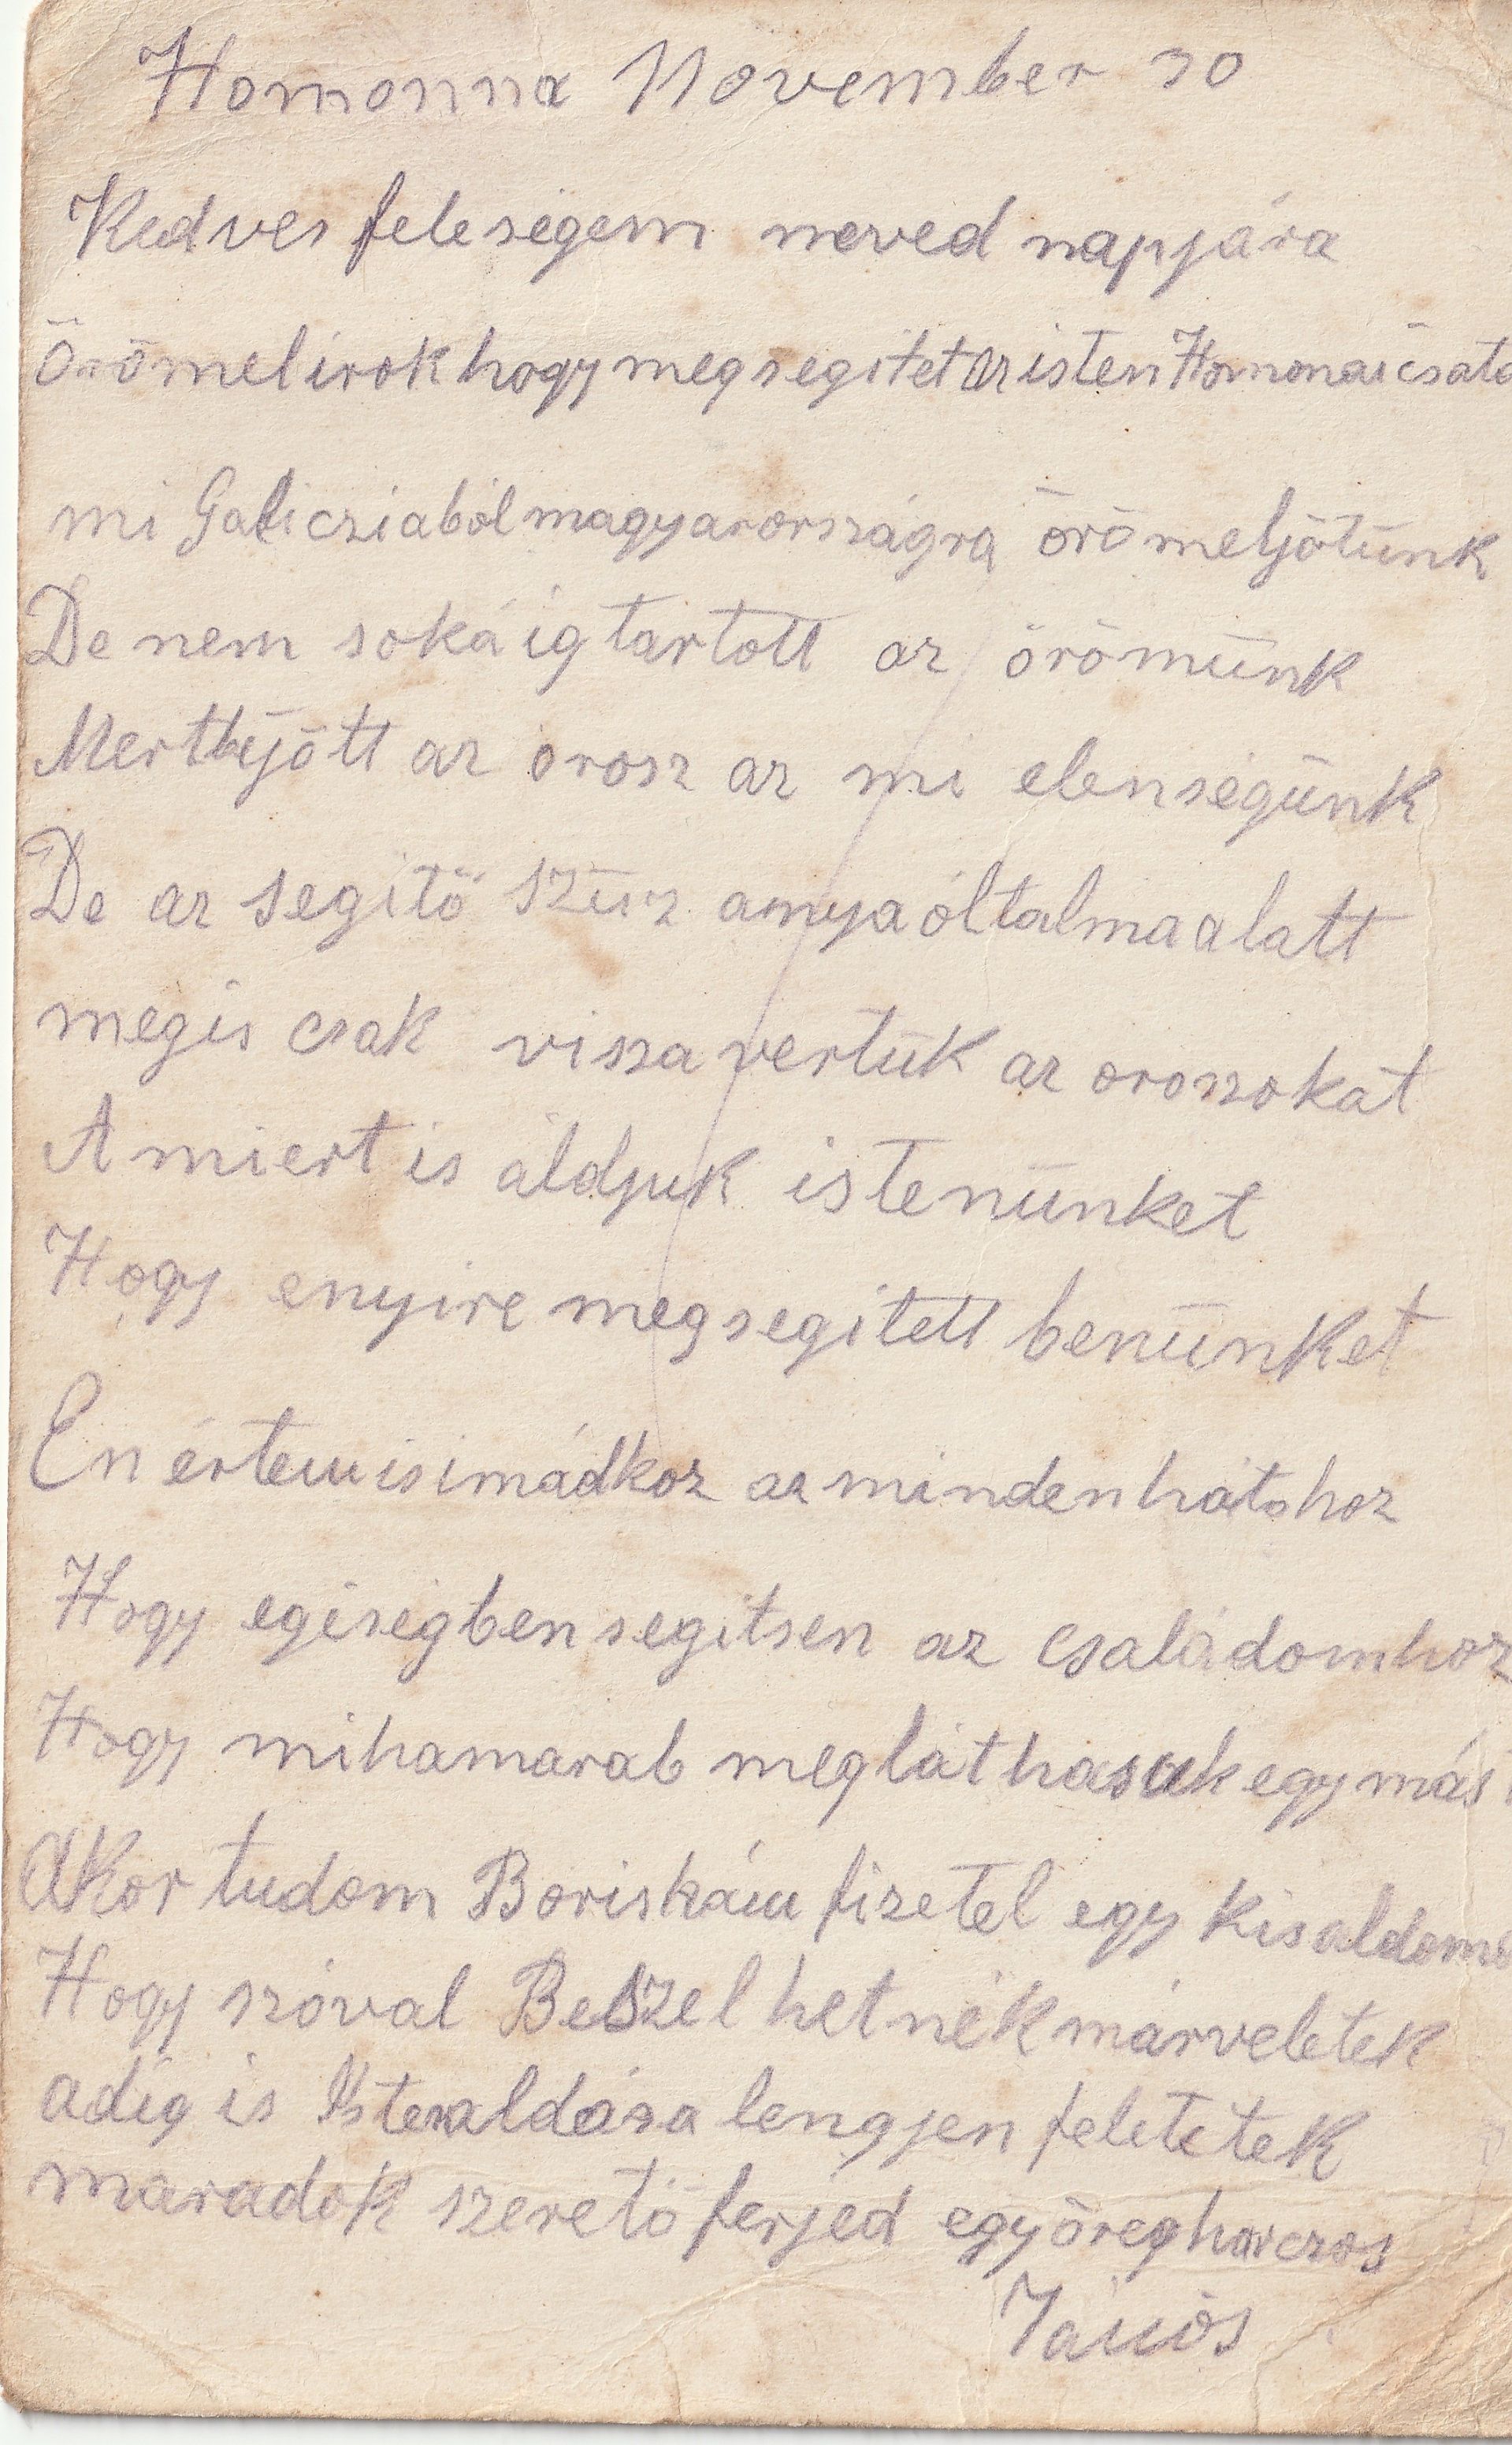 Homonna November 30
Kedves feleségem neved napjára
Örömel irok hogy megsegitet az isten Homonai csata
mi Galicziaból magyarországra örömel jötünk
De nem sokáig tartott az örömünk
Mert bejött az orosz az mi elenségünk
De az segitö szüz anya óltalma alatt
megis csak visza vertük az oroszokat
A miert is áldjuk istenünket
Hogy enyire meg segitett benünket
En értem is imádkoz az mindenhátohoz
Hogy egéségben segitsen az családomhoz
Hogy mihamarab megláthasuk egymás
Akor tudom Boriskám fizetel egy kis aldomá
Hogy szóval Beszelhetnék már veletek
adig is Isten aldása lengjen feletetek
maradok szeretö ferjed egy öreg harczos
János